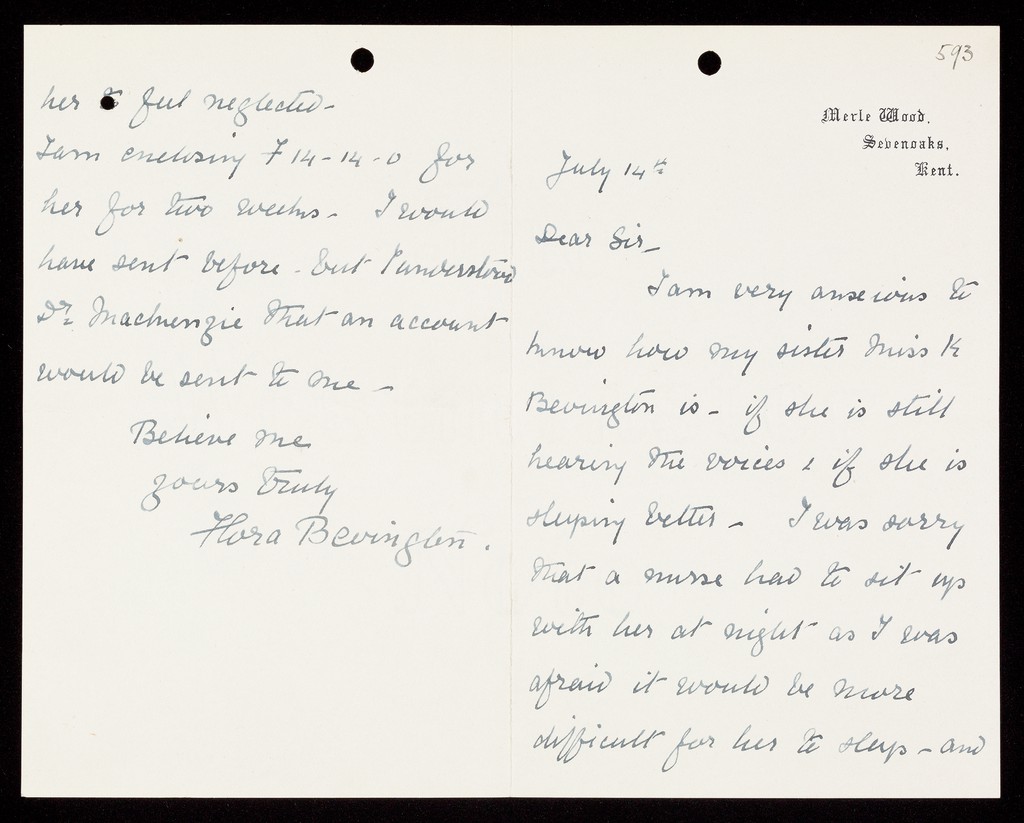 593
Merle Wood,
Sevenoaks,
Kent.
July 14th
Dear Sir -
I am very anxious to
know how my sister Miss K
Bevington is - if she is still
hearing the voices & if she is
sleeping better - I was sorry
that a nurse had to sit up
with her at night as I was
afraid it would be more
difficult for her to sleep - and
her to feel neglected -
I am enclosing £14-14-0 for
her for two weeks - I would
have sent before - but I understood
Dr Mackenzie that an account
would be sent to me -
Believe me
yours truly
Flora Bevington.